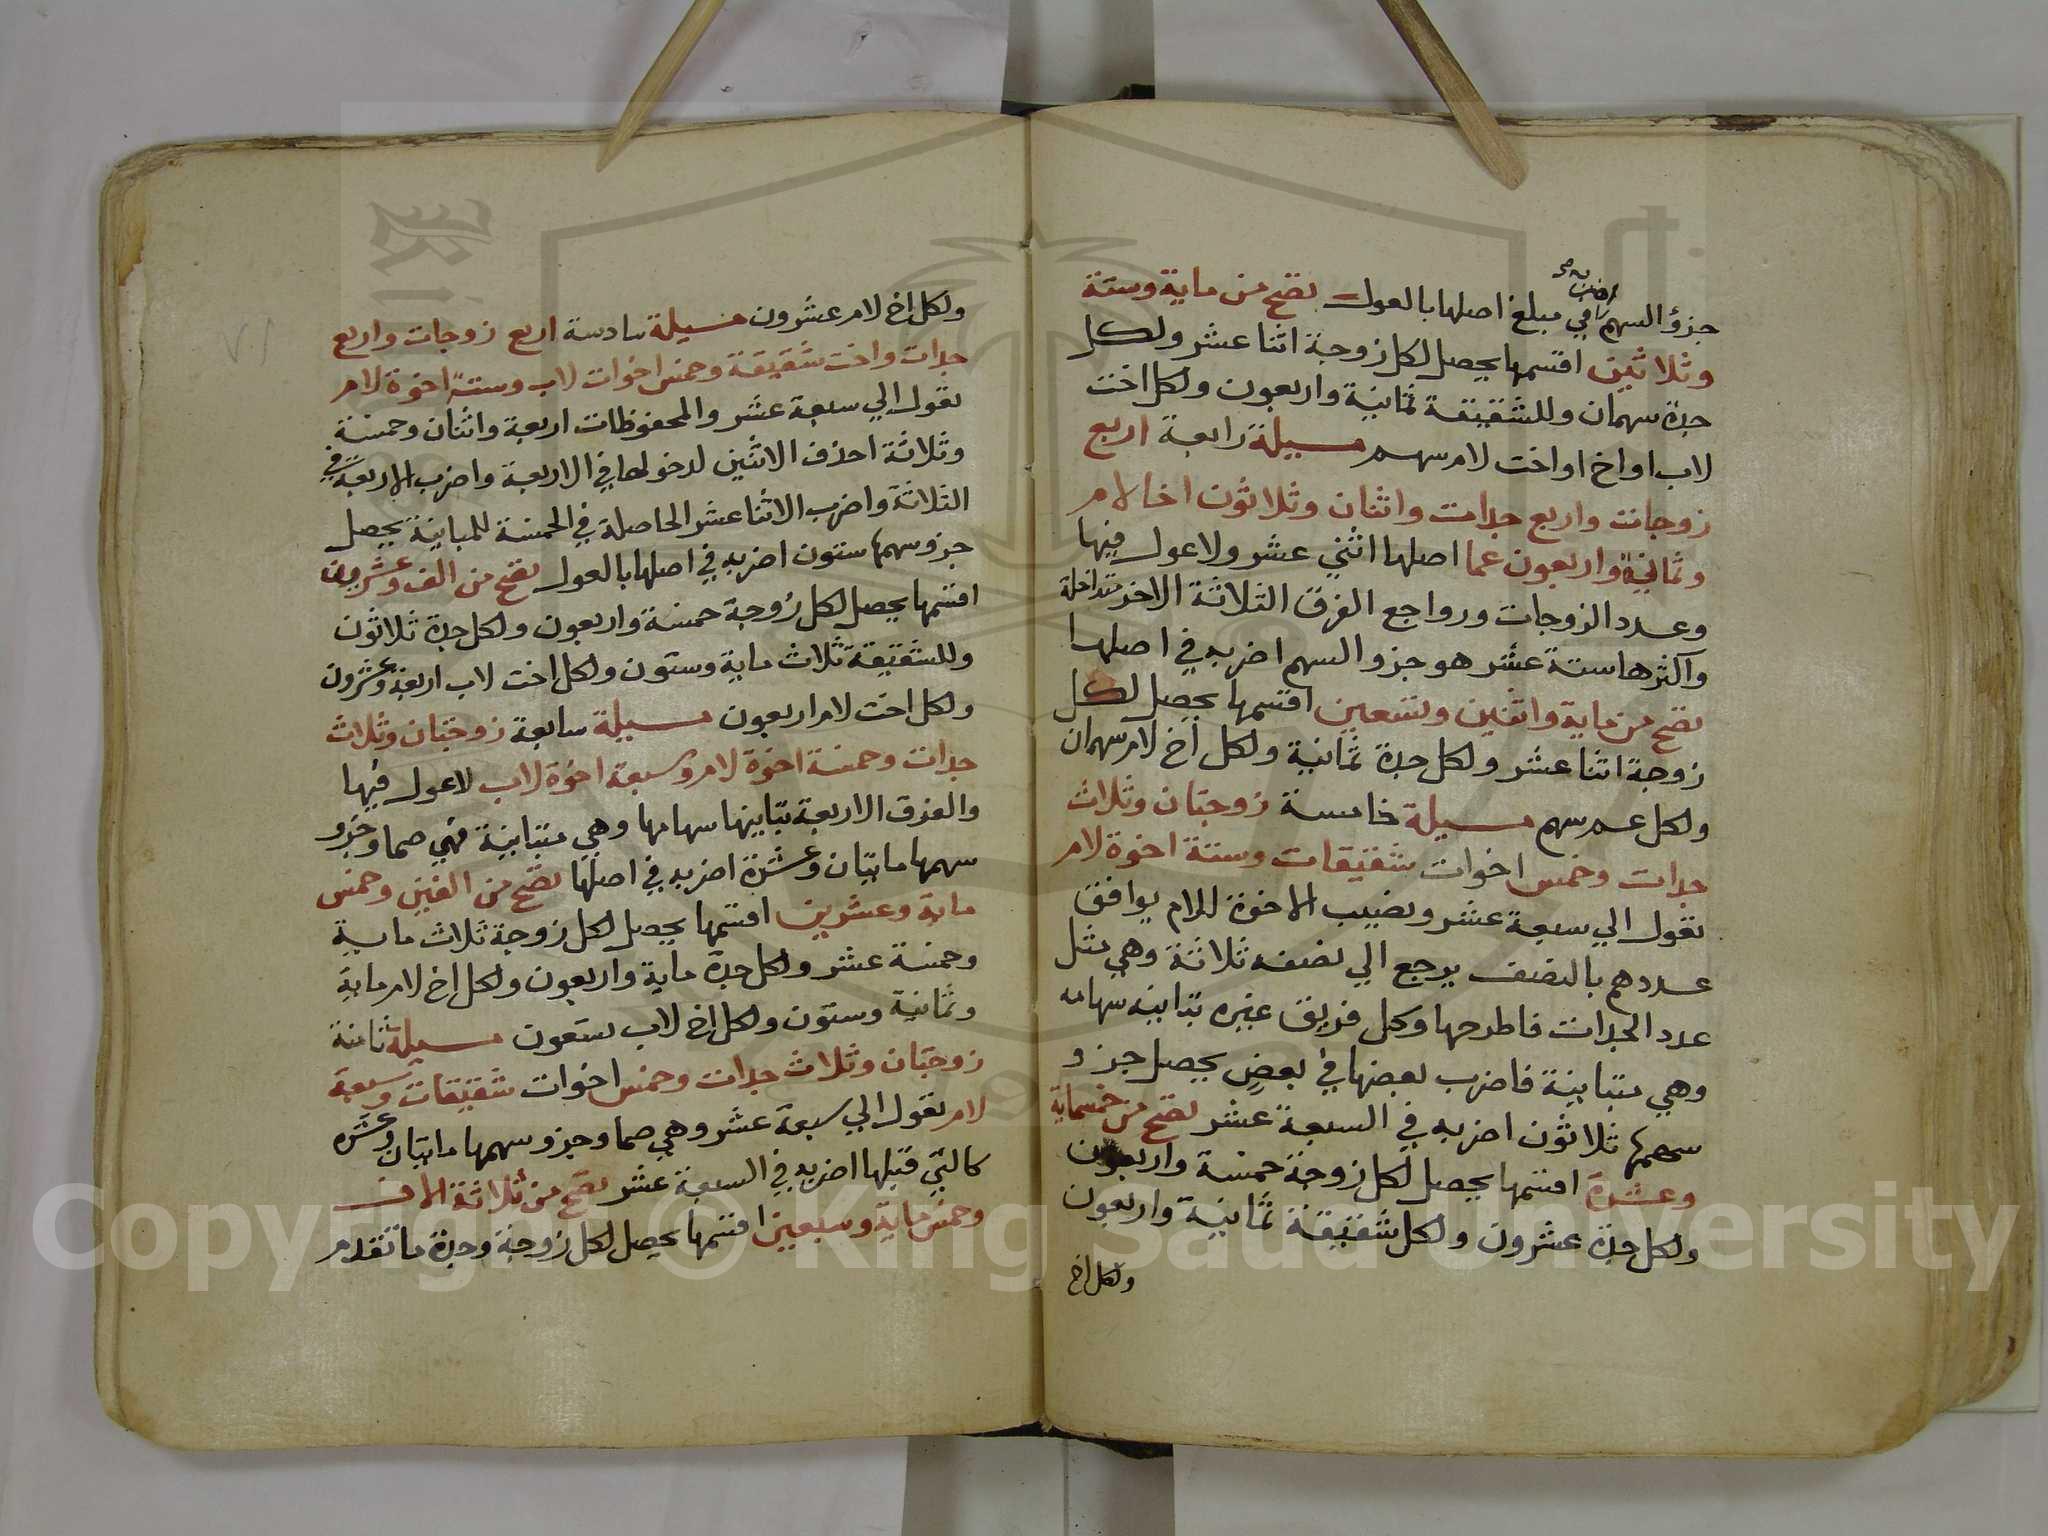 اضربه صح
جزؤ السهم في مبلغ اصلها بالعول تصح من ماية وستة
وثلاثين اقسمها يحصل لكل زوجة اثنا عشر ولكل
جدة سهمان وللشقيقة ثمانية واربعون ولكل اخت
لاب او اخ او اخت لام سهم مسيلة رابعة اربع
زوجات واربع جدات واثنان وثلاثون اخا لام
وثمانية واربعون عما اصلها اثني عشر ولا عول فيها
وعدد الزوجات ورواجع الفرق الثلاثة الاخر متداخلة
واكثرها ستة عشر هو جزو السهم اضربه في اصلها
تصح من ماية واثنين وتسعين اقسمها يحصل لكل
زوجة اثنا عشر ولكل جدة ثمانية ولكل اخ لام سهمان
ولكل عم سهم مسيلة خامسة زوجتان وثلاث
جدات وخمس اخوات شقيقات وستة اخوة لام
تعول الي سبعة عشر ونصيب الاخوة للام يوافق
عددهم بالنصف يرجع الي نصفه ثلاثة وهي مثل
عدد الجدات فاطرحها وكل فريق غيره تباينه سهامه
وهي متباينة فاضرب بعضها في بعض يحصل جزو
سهمها ثلاثون اضربه في السبعة عشر تصح من خمسماية
وعشرة اقسمها يحصل لكل زوجة خمسة واربعون
ولكل جدة عشرون ولكل شقيقة ثمانية واربعون
ولكل اخ
ولكل اخ لام عشرون مسيلة سادسة اربع زوجات واربع
جدات واخت شقيقة وخمس اخوات لاب وستة اخوة لام
تعول الي سبعة عشر والمحفوظات اربعة واثنان وخمسة
وثلاثة احذف الاثنين لدخولها في الاربعة واضرب الاربعة في
الثلاثة واضرب الاثنا عشر الحاصلة في الخمسة للمباينة يحصل
جزو سهمها ستون اضربه في اصلها بالعول تصح من الف وعشرين
اقسمها يحصل لكل زوجة خمسة واربعون ولكل جدة ثلاثون
وللشقيقة ثلاث ماية وستون ولكل اخت لاب اربعة وعشرون
ولكل اخت لام اربعون مسيلة سابعة زوجتان وثلاث
جدات وخمسة اخوة لام وسبعة اخوة لاب لا عول فيها
والفرق الاربعة تباينها سهامها وهي متباينة فهي صما وجزو
سهمها مايتان وعشرة اضربه في اصلها تصح من الفين وخمس
ماية وعشرين اقسمها يحصل لكل زوجة ثلاث ماية
وخمسة عشر ولكل جدة ماية واربعون ولكل اخ لام ماية
وثمانية وستون ولكل اخ لاب تسعون مسيلة ثامنة
زوجتان وثلاث جدات وخمس اخوات شقيقات وسبعة
لام تعول الي سبعة عشر وهي صما وجزو سهمها مايتان وعشرة
كالتي قبلها اضربه في السبعة عشر تصح من ثلاثة الاف
وخمس ماية وسبعين اقسمها يحصل لكل زوجة وجدة ما تقدم
Copyright © King Saud University